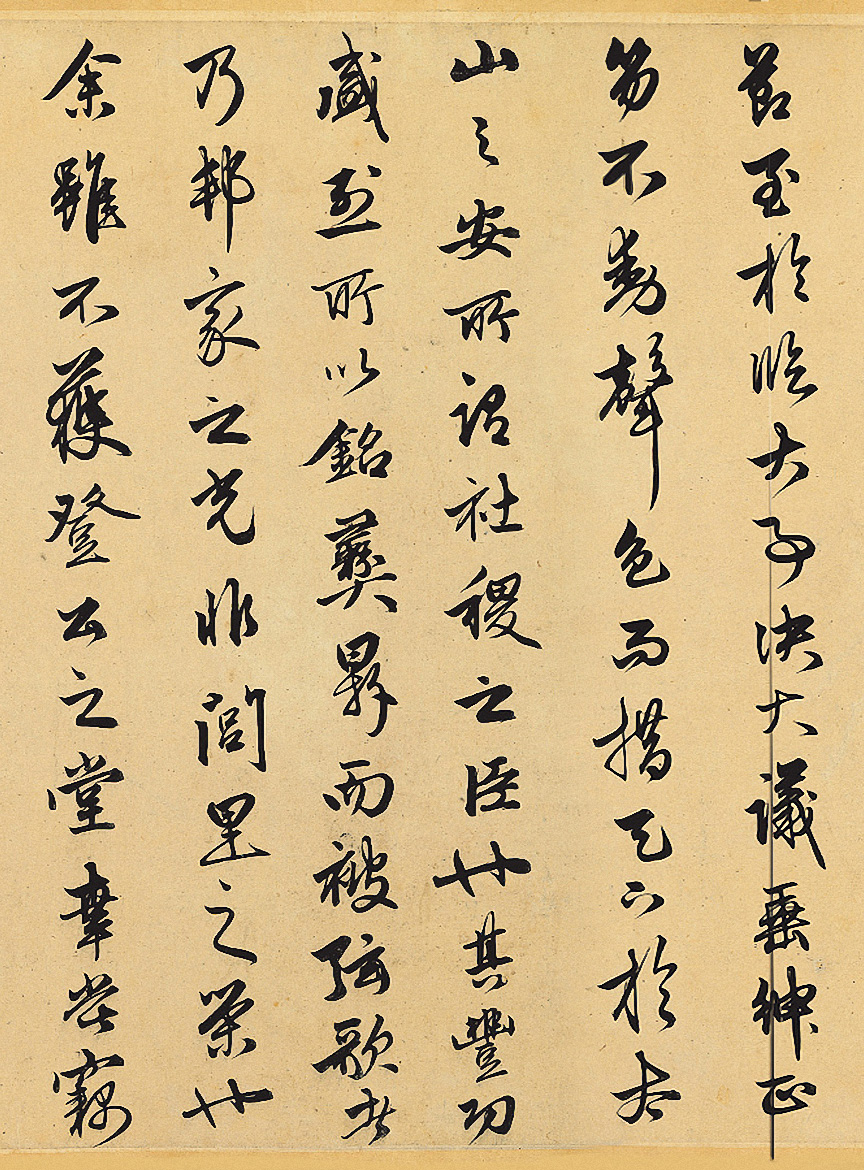 節至於臨大事決大議垂紳正
笏不動聲色而措天下於太
山之安所謂社稷之臣也其豐功
盛烈所以銘彝鼎而被弦歌者
乃邦家之光非閭里之榮也
余雖不獲登公之堂幸嘗竊